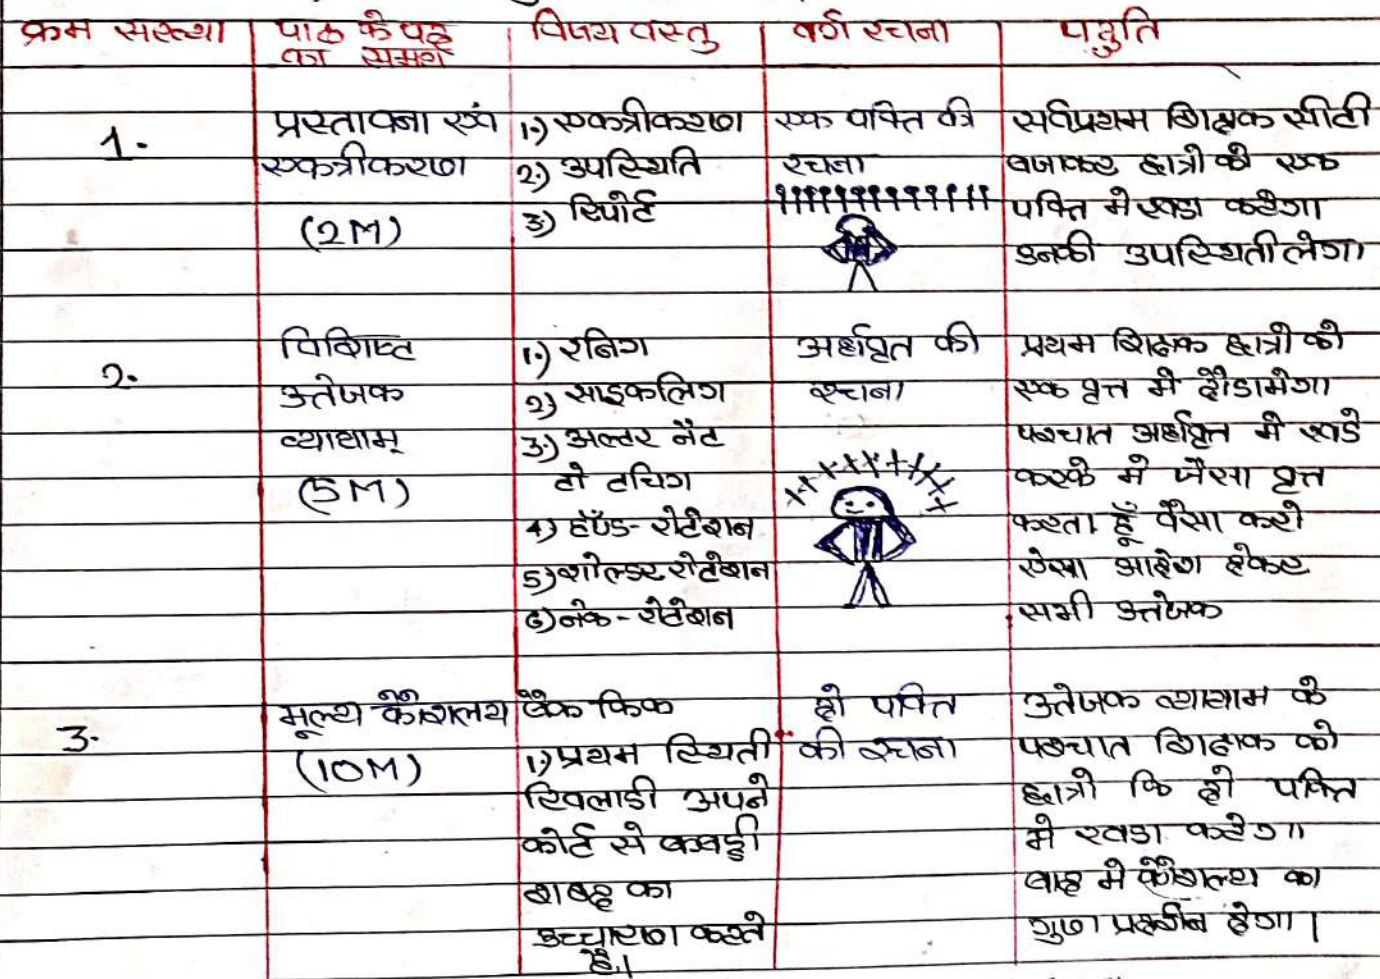 क्रम सरख्या | पाठ के पद का समग्र | विजय वस्तु | वर्ग रचना | पद्धति
1.
प्रस्तावना एवं
एकत्रीकरण
(2M)
1.) एकत्रीकरण
2.) उपस्थिति
3) रिपोर्ट
एक पक्ति की
रचना
सर्वप्रथम शिक्षक सीटी
बजाकर छात्रो को एक
पक्ति मे खडा करेगा
उनकी उपस्थिती लेगा
2.
विशिष्ट
उत्तेजक
व्यायाम
(5M)
1.) रनिग
2) साइकलिग
3.) अल्टर नेट
टो टचिग
4) हॅण्ड-रोटेशन
5) शोल्डर रोटेशन
6) नेक-रोटेशन
अर्धवृत की
रचना
प्रथम शिक्षक छात्रो को
एक वृत्त मे दौडामेगा
पश्चात अर्धवृत्त मे खडे
करके मे जैसा वृत्त
करता हूँ वैसा करो
ऐसा आदेश देकर
सभी उत्तेजक
3.
मूल्य कौशलय
(10M)
बैक किक
1.) प्रथम स्थिती
खिलाडी अपने
कोर्ट से कबड्डी
शबद का
उच्चारण करते
है।
दो पक्ति
की रचना
उतेजक व्यायाम के
पश्चात शिक्षक को
छात्रो कि दो पक्ति
मे खडा करेगा
बाद मे कौशल्य का
गुण प्रदर्शन देगा।